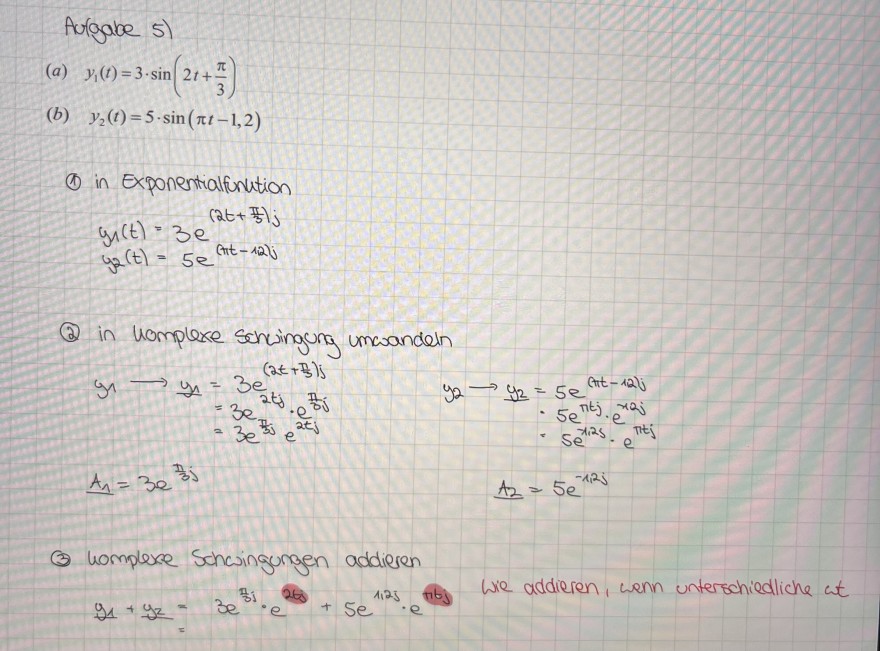 Aufgabe 5)
(a) y₁(t) = 3·sin(2t + π/3)
(b) y₂(t) = 5·sin(πt − 1,2)
① in Exponentialfunktion
y1(t) = 3e^(2t + π/3)j
y2(t) = 5e^(πt − 1,2)j
② in komplexe Schwingung umwandeln
y1 → y1 = 3e^(2t + π/3)j
= 3e^2tj · e^π/3j
= 3e^π/3j e^2tj
A1 = 3e^π/3j
y2 → y2 = 5e^(πt − 1,2)j
= 5e^πtj · e^-1,2j
= 5e^-1,2j · e^πtj
A2 = 5e^-1,2j
③ komplexe Schwingungen addieren
y1 + y2 = 3e^π/3j · e^2tj + 5e^1,2j · e^πtj
=
Wie addieren, wenn unterschiedliche ωt